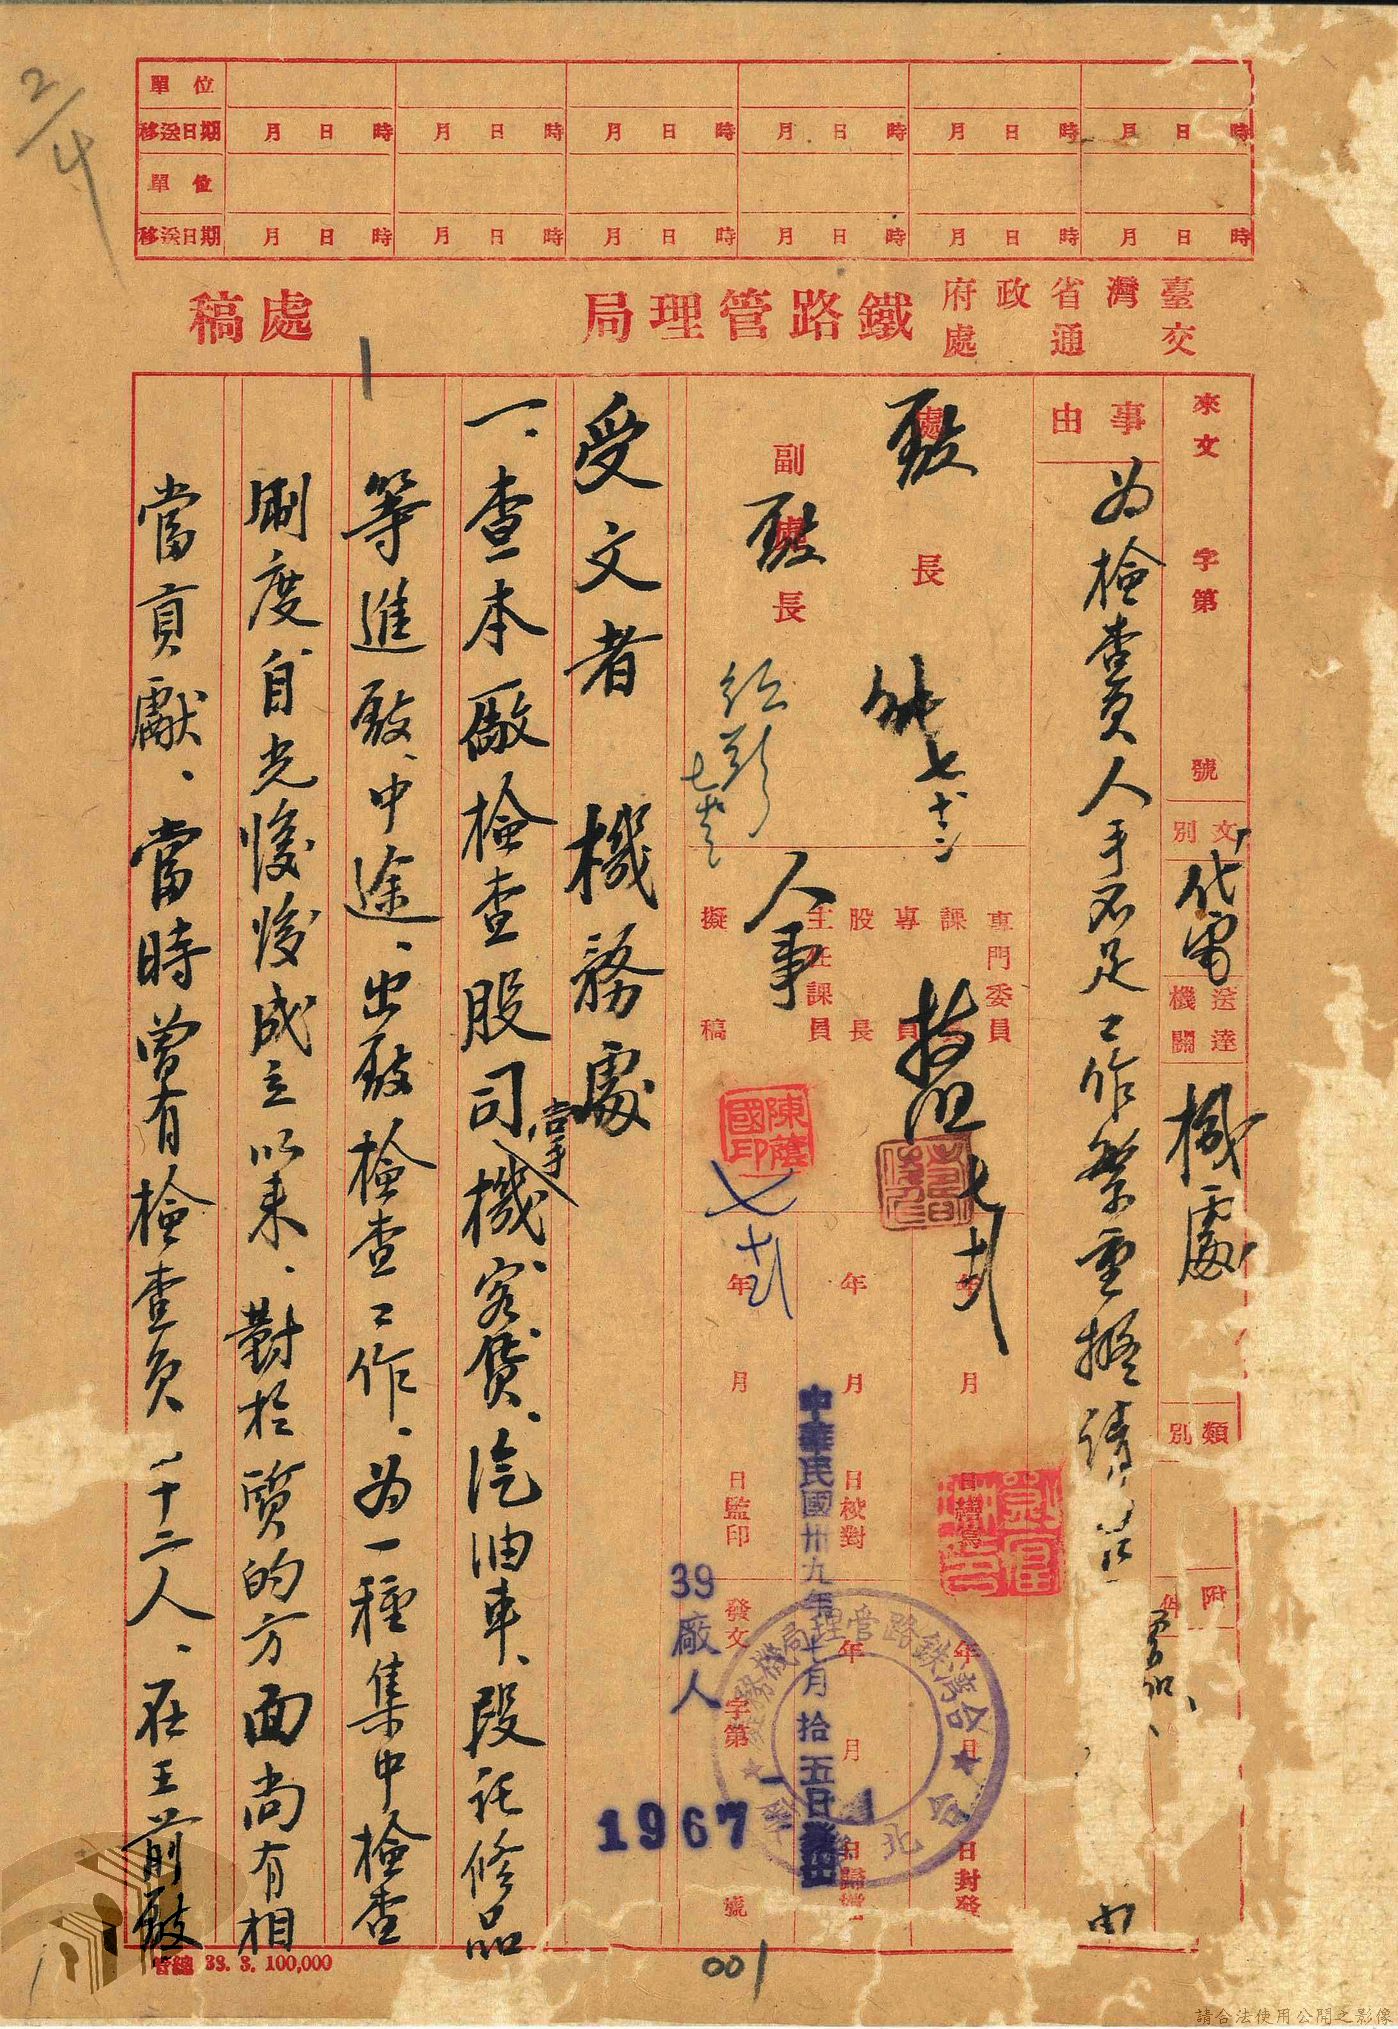 2/4
單位
移送日期 月日時 月日時 月日時 月日時 月日時 月日時
單位
移送日期 月日時 月日時 月日時 月日時 月日時 月日時
臺灣省政府交通處鐵路管理局 處稿
來文 字第 號
文別 代電
送達機關 機處
類別
附件
事由
為檢查員人手不足工作繁重擬請 由
處長
副處長
專門委員
課長
專員
股長
主任課員
擬稿
人事
陳蔭國印
年 月 日繕寫
年 月 日校對
年 月 日監印
年 月 日封發
年 月 日歸檔
發文 字第 號
中華民國卅九年七月拾五日發出
39廠人
1967
台灣鐵路管理局機務處
台北
受文者 機務處
一、查本廠檢查股司掌機客貨、汽油車、段託修品
等進廠、中途、出廠檢查工作、為一種集中檢查
制度自光復後成立以來、對於質的方面尚有相
當貢獻、當時曾有檢查員二十二人、在王前廠
管總 39. 3. 100,000
001
請合法使用公開之影像